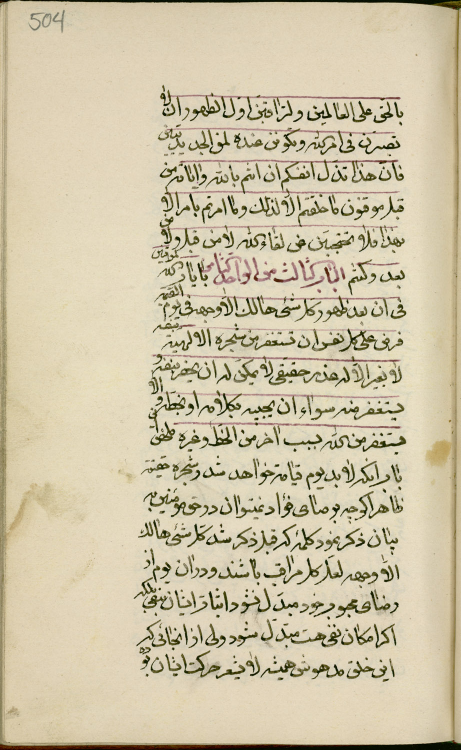 504
بالحق على العالمین ولتراقبن اول الظهور ان لا
تصبرن فی امر الله وتكونن عنده لمن
فان هذا تذل انفسكم ان انتم بالله وایاته من
قبل موقنون ما خلقتم الا لذلك وما امرتم بامر الا
بهذا فلا تحتجبن عن لقاء الله لا من قبل ولا من
بعد وكنتم الباب الثالث من الواحد بایات الله
فی ان بعد ظهور كل شیء هالك الا وجهه فی یوم القیمة
فرض على كل نفس ان تستغفر من شجرة الالهیة بنفسه
لا بغیر الا له عذر حقیقی لا یمكن له ان یحضر بنفسه
یستغفر منه سواء ان یجیبه بكلام او بخط والا
یستغفر من الله بسبب اخر من الخط وغیره
بابرانكه لابد یوم قیامة خواهد شد و شجره حقیقة
ظاهر اگرچه برضای فؤاد نمیتوان در حق مؤمنین به
بیان ذكر نمود كلمه كه قبل ذكر شد كل شیء هالك
الا وجهه لعل كل مراقب باشند و در ان یوم از
رضای محبوب خود مبدل نشود اثبات ایشان بنفی بلكه
اگر امكان نفی هست مبدل شود ولی از انجائی كه
این خلق مدهوش همیشه لا یشعر حركت ایشان بوده